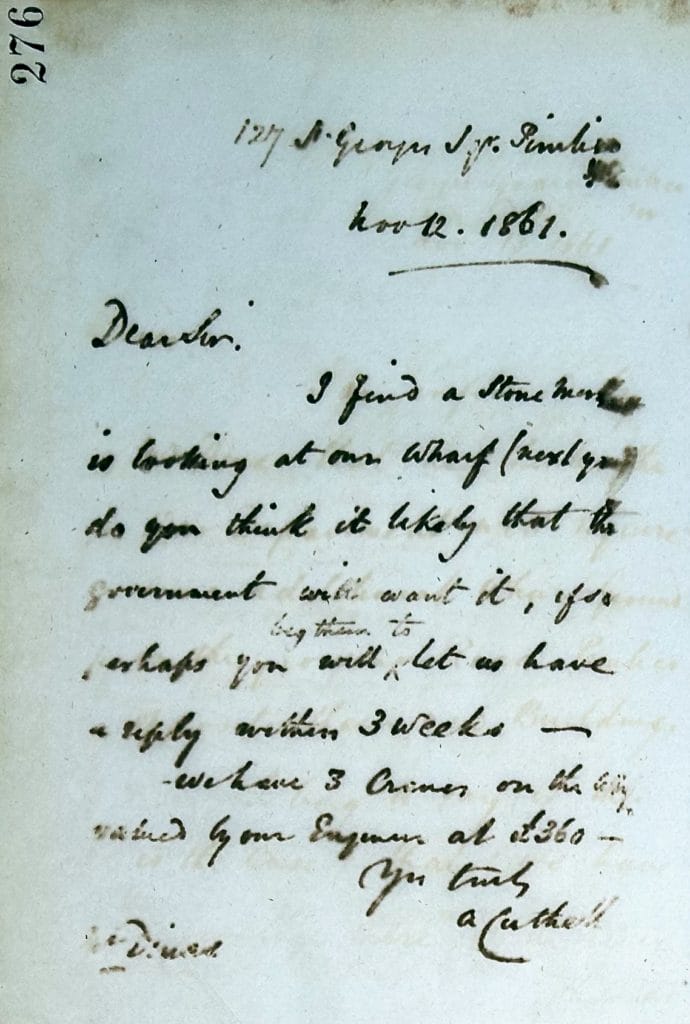 276
127 St. Georges Sqr. Pimlico
Nov 12. 1861.
Dear Sir.
I find a Stone
is looking at our Wharf (next
do you think it likely that the
government will want it, if so
beg them to
perhaps you will let us have
a reply within 3 weeks —
- we have 3 Cranes on the
valued by our Engineer at £360 —
Yrs truly
A Cuthell
Mr Dines